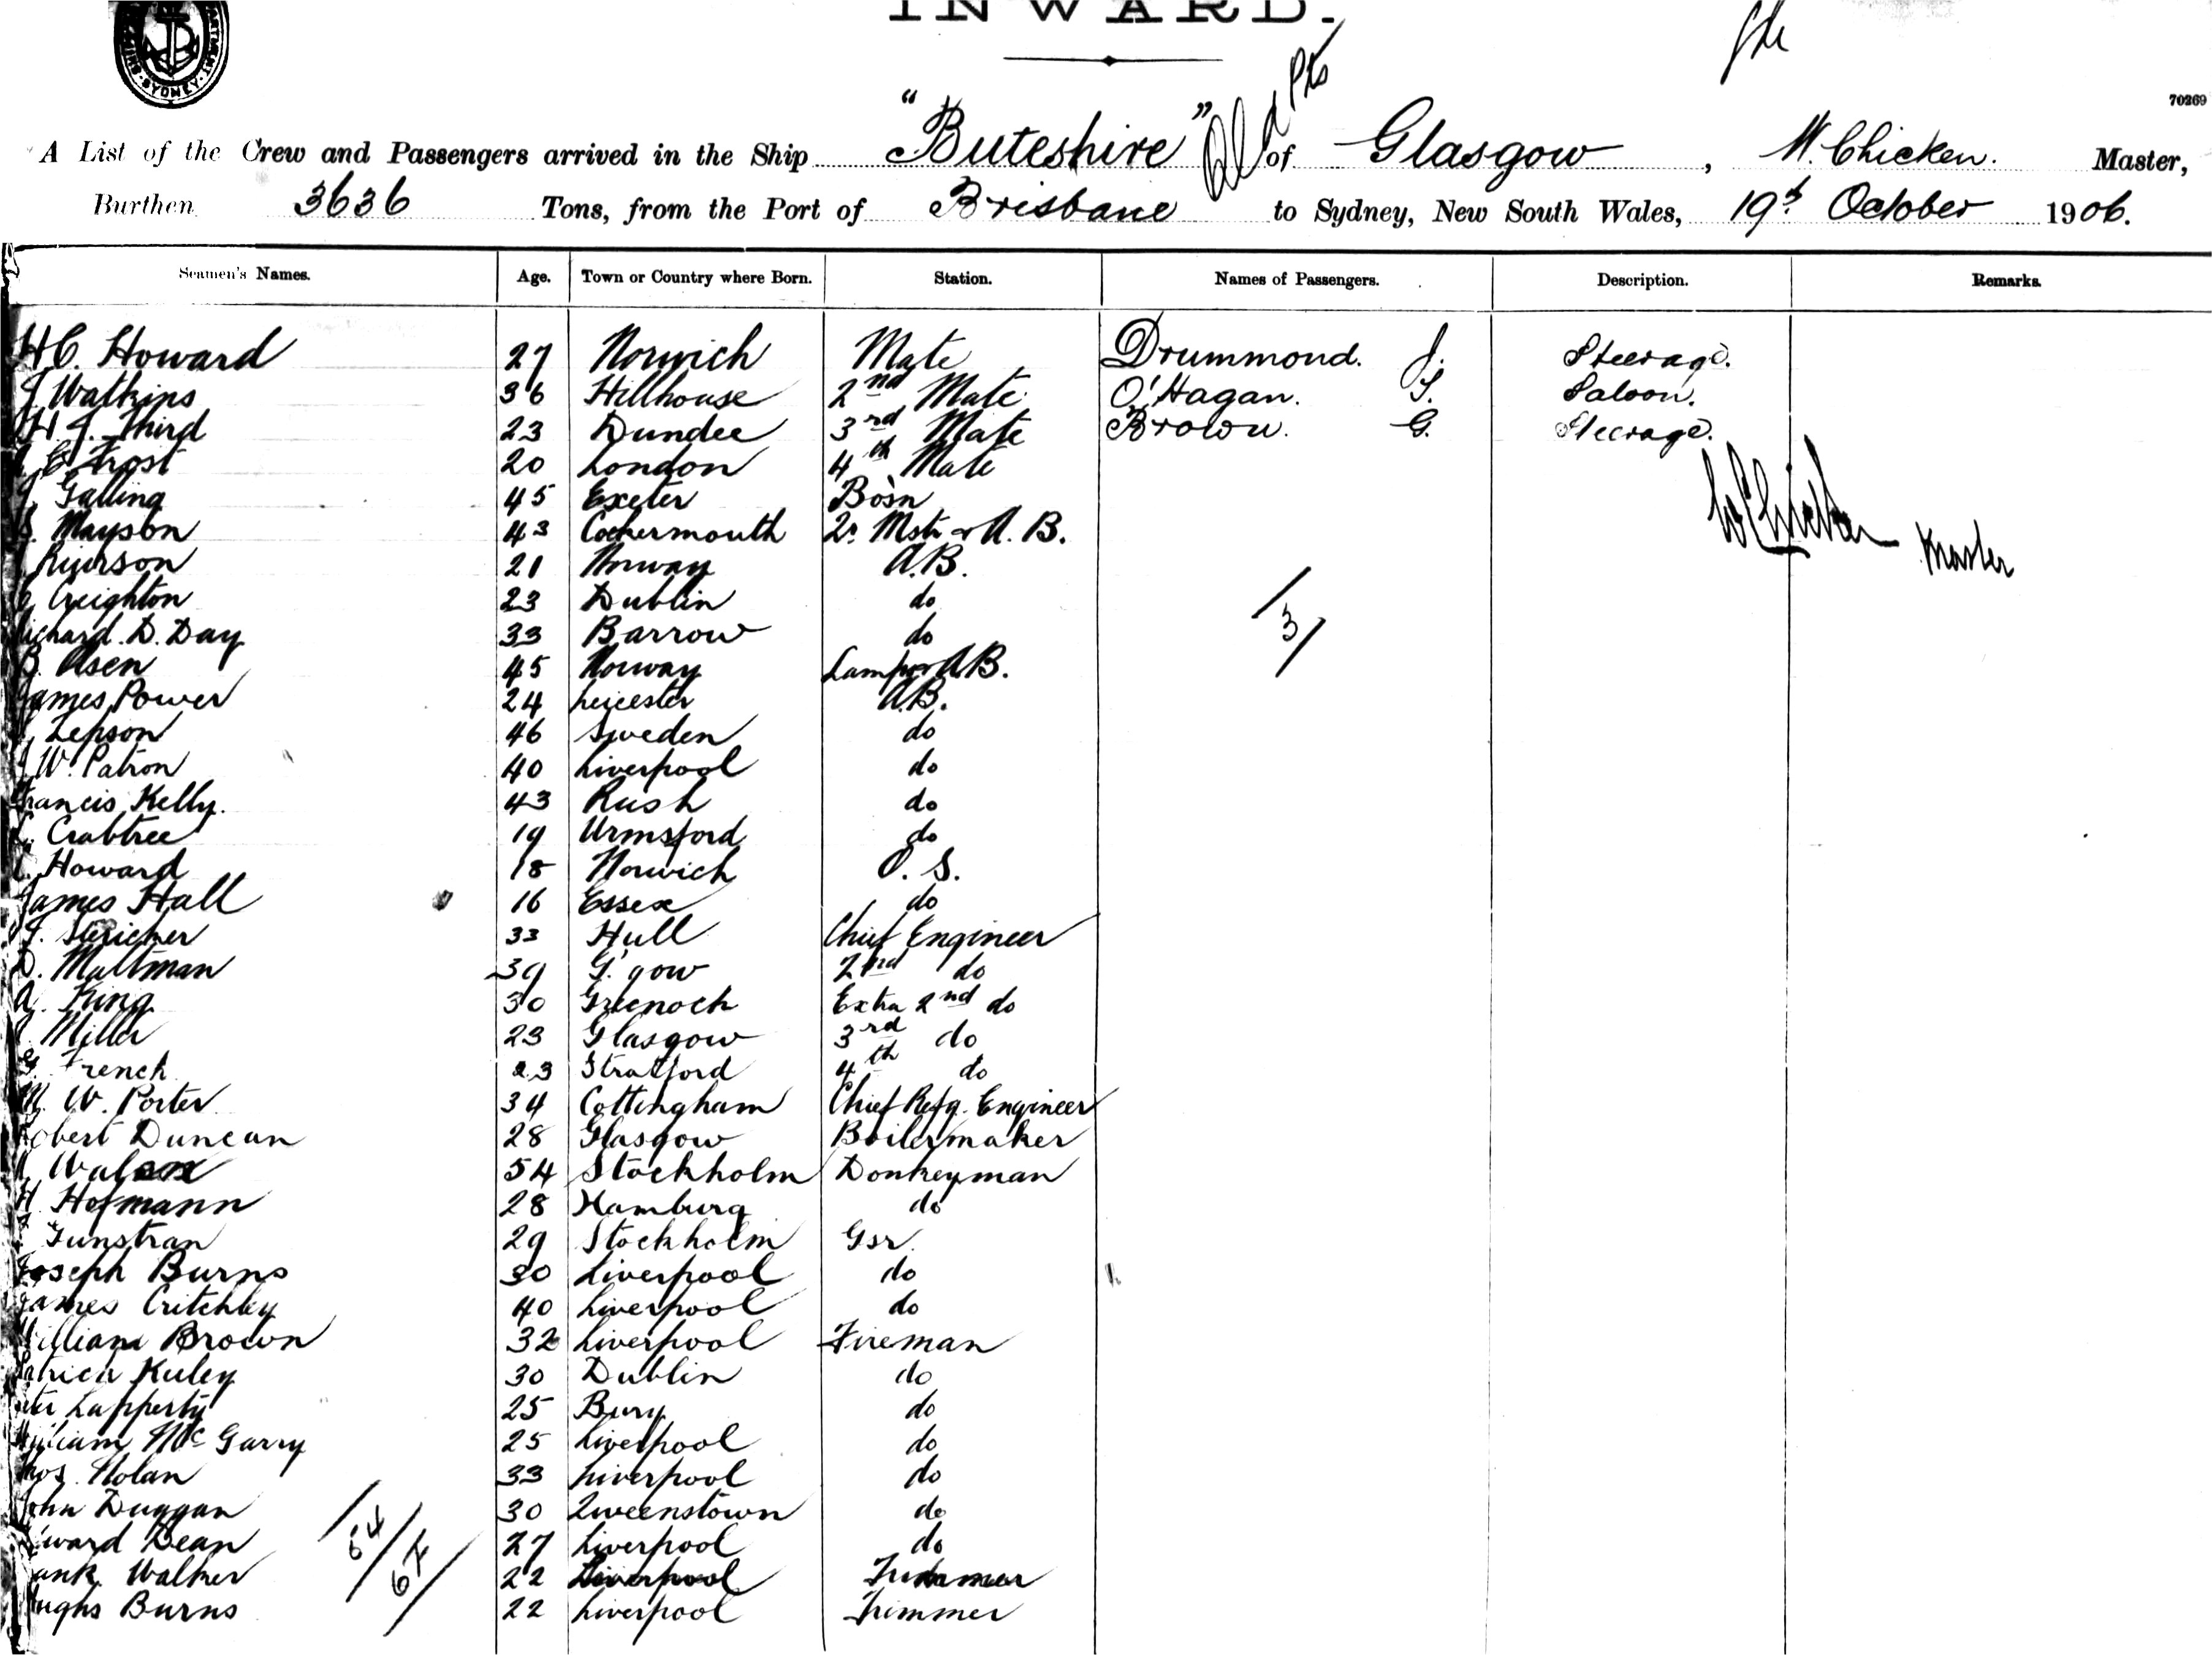 INWARD.
70269
A List of the Crew and Passengers arrived in the Ship "Buteshire" of Glasgow, W. Chicken. Master,
Burthen 3636 Tons, from the Port of Brisbane to Sydney, New South Wales, 19th October 1906.
Seamen's Names. Age. Town or Country where Born. Station. Names of Passengers. Description. Remarks.
H C. Howard 27 Norwich Mate Drummond. J. Steerage.
J Watkins 36 Hillhouse 2nd Mate O'Hagan. T. Saloon.
H. J. Third 23 Dundee 3rd Mate Brown. G. Steerage.
E Frost 20 London 4th Mate
J. Galling 45 Exeter Bosn
S. Mayson 43 Cockermouth 2r. Mstr & A. B.
21 Norway A.B.
Creighton 23 Dublin do
Richard. D. Day 33 Barrow do
B. Olsen 45 Norway Lamps & A B.
James Power 24 Leicester A.B.
Lepson 46 Sweden do
J W. Patron 40 Liverpool do
Francis Kelly. 43 Rush do
Crabtree 19 Urmsford do
Howard 18 Norwich O. S.
James Hall 16 Essex do
J. 33 Hull Chief Engineer
D. Maltman 39 G'gow 2nd do
A. King 30 Greenock Extra 2nd do
Miller 23 Glasgow 3rd do
G. French 23 Stratford 4th do
M. W. Porter 34 Cottingham Chief Refg. Engineer
Robert Duncan 28 Glasgow Boilermaker
54 Stockholm Donkeyman
H Hofmann 28 Hamburg do
Funstran 29 Stockholm Gsr.
Joseph Burns 30 Liverpool do
James Critchley 40 Liverpool do
William Brown 32 Liverpool Fireman
Patrick Kuley 30 Dublin do
Peter Lapperty 25 Bury do
William Mc Garry 25 Liverpool do
Thos. Nolan 33 Liverpool do
John Duggan 30 Queenstown do
Edward Dean 27 Liverpool do
Frank Walker 22 Liverpool Trimmer
Hughs Burns 22 Liverpool Trimmer
W Chicken Master
/3/
/64/67/
SYDNEY